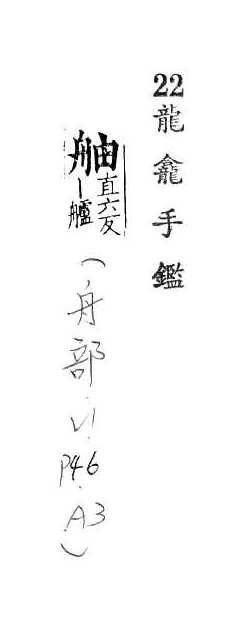 22龍龕手鑑
舳直六反
丨艫
(舟部.V1.P46.A3)